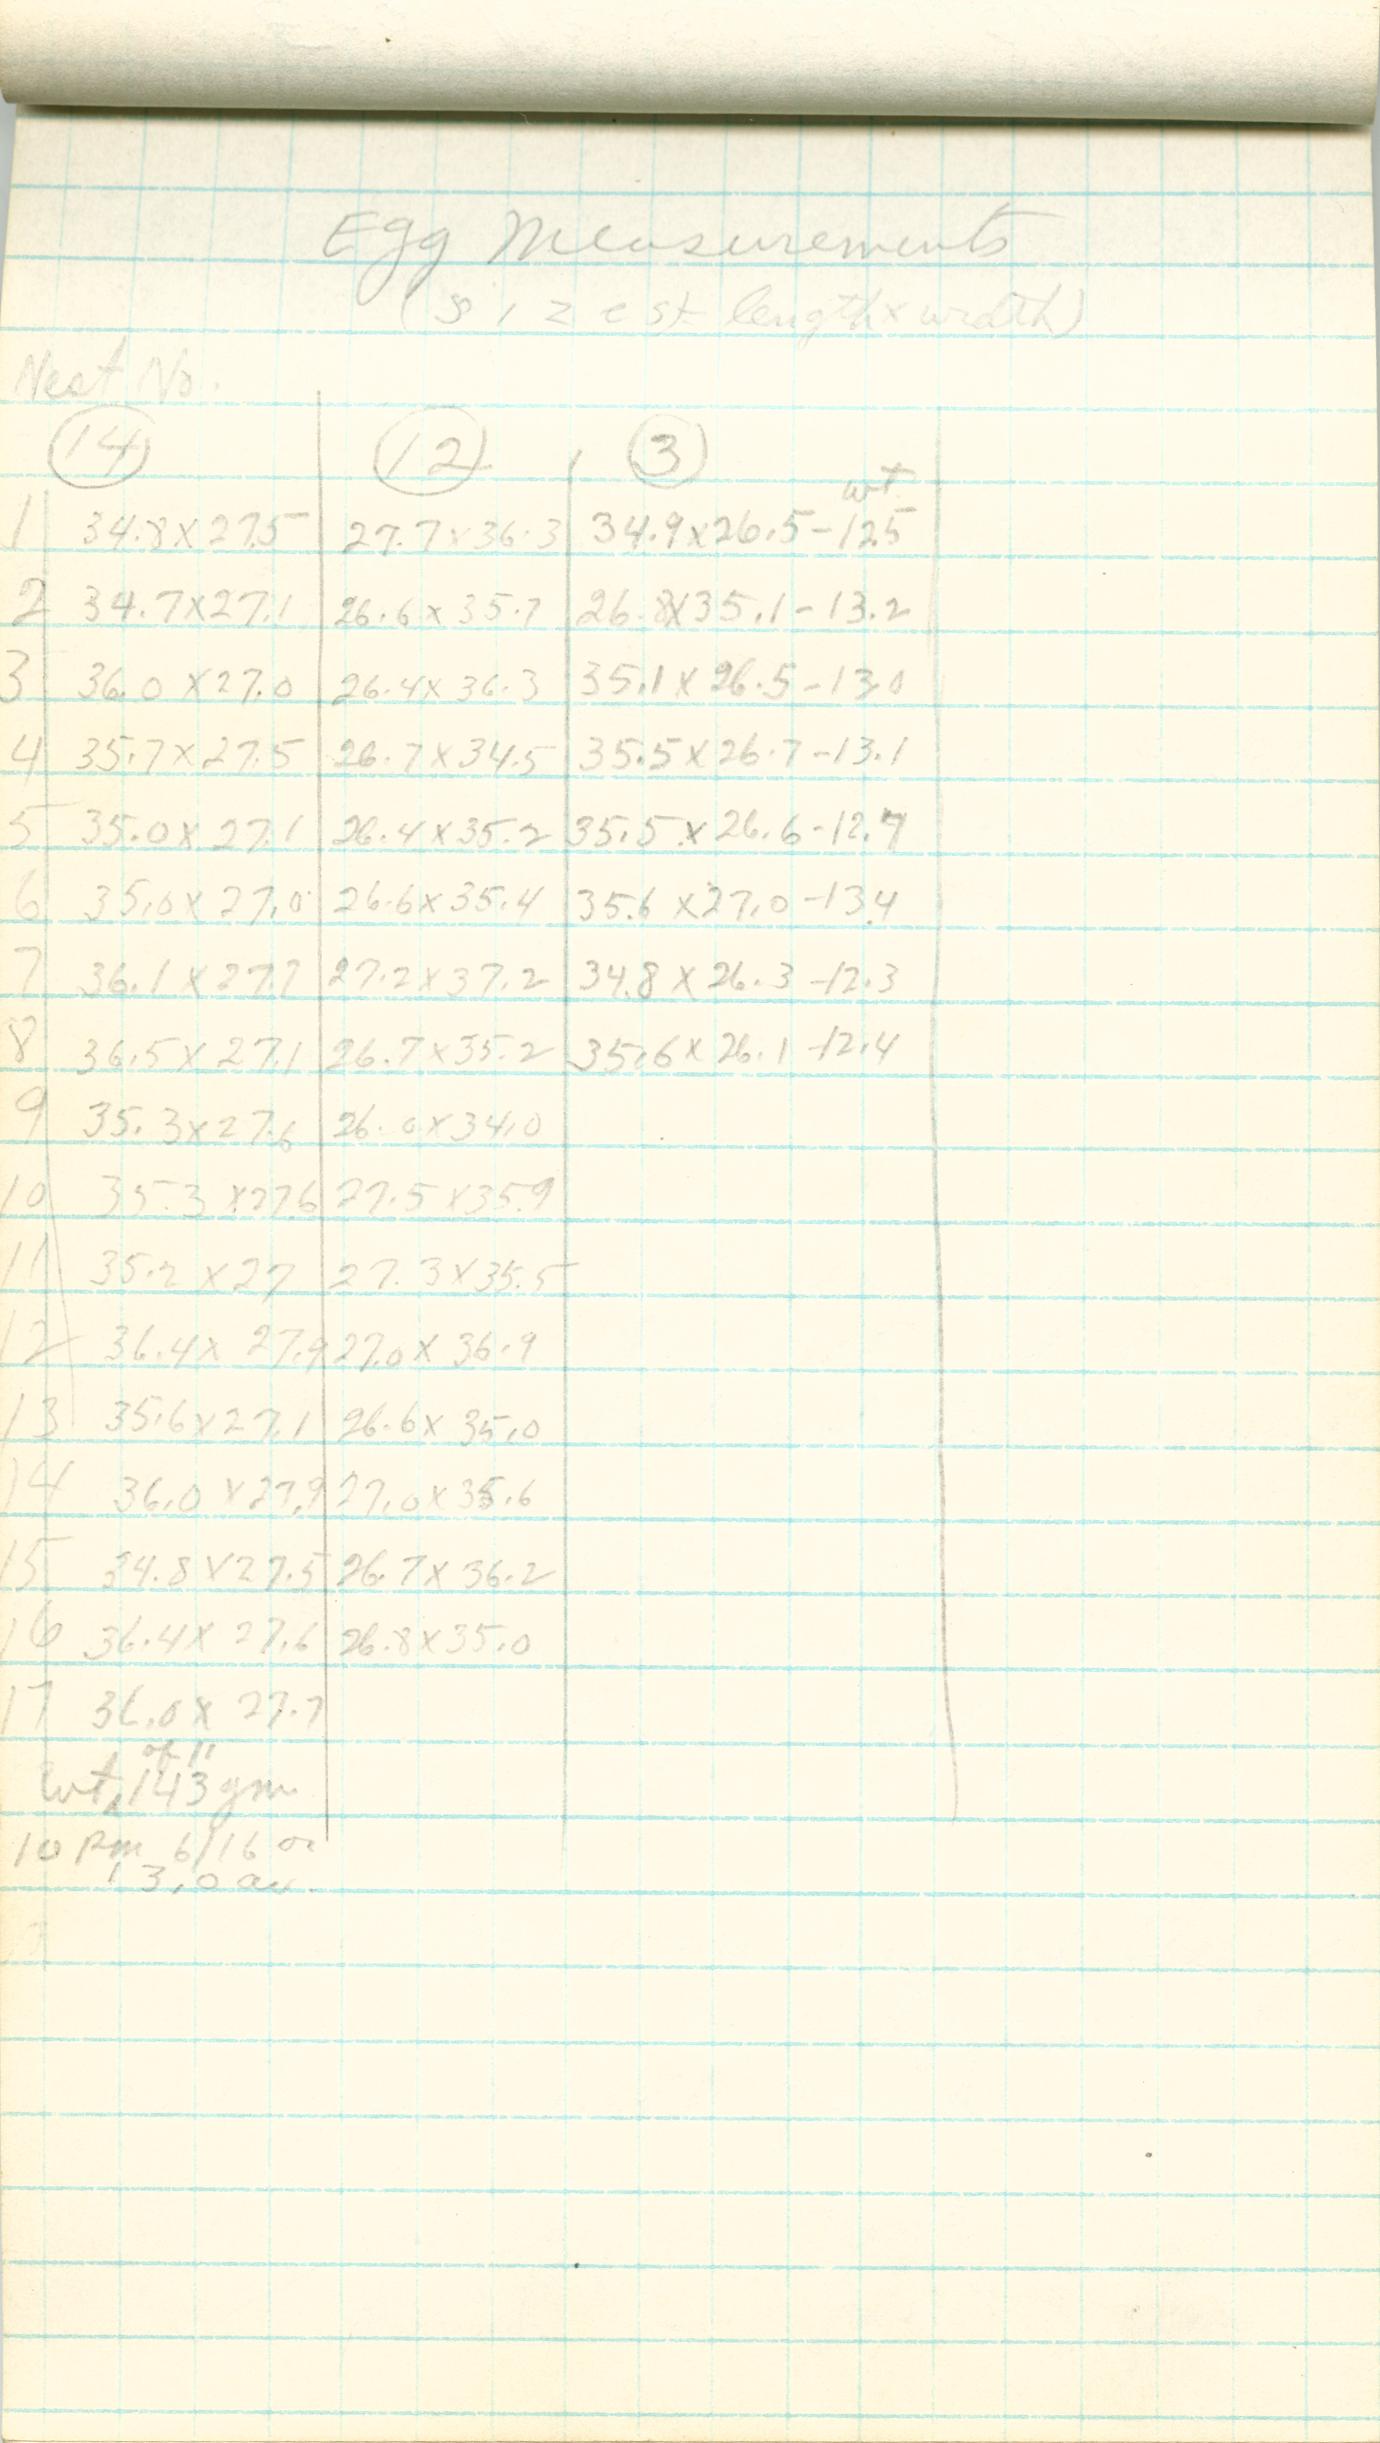 Egg Measurements
(size est length x width)
Nest No.
14 12 3
wt.
1 34.8 x 27.5 27.7 x 36.3 34.9 x 26.5 - 12.5
2 34.7 x 27.1 26.6 x 35.7 26.8 x 35.1 - 13.2
3 36.0 x 27.0 26.4 x 36.3 35.1 x 26.5 - 13.0
4 35.7 x 27.5 26.7 x 34.5 35.5 x 26.7 - 13.1
5 35.0 x 27.1 26.4 x 35.2 35.5 x 26.6 - 12.7
6 35.0 x 27.0 26.6 x 35.4 35.6 x 27.0 - 13.4
7 36.1 x 27.7 27.2 x 37.2 34.8 x 26.3 - 12.3
8 36.5 x 27.1 26.7 x 35.2 35.6 x 26.1 - 12.4
9 35.3 x 27.6 26.0 x 34.0
10 35.3 x 27.6 27.5 x 35.9
11 35.2 x 27 27.3 x 35.5
12 36.4 x 27.9 27.0 x 36.9
13 35.6 x 27.1 26.6 x 35.0
14 36.0 x 27.9 27.0 x 35.6
15 34.8 x 27.5 26.7 x 36.2
16 36.4 x 27.6 26.8 x 35.0
17 36.0 x 27.7
of 11
Wt. 143 gm
10 Pm 6/16 or
13.0 av.